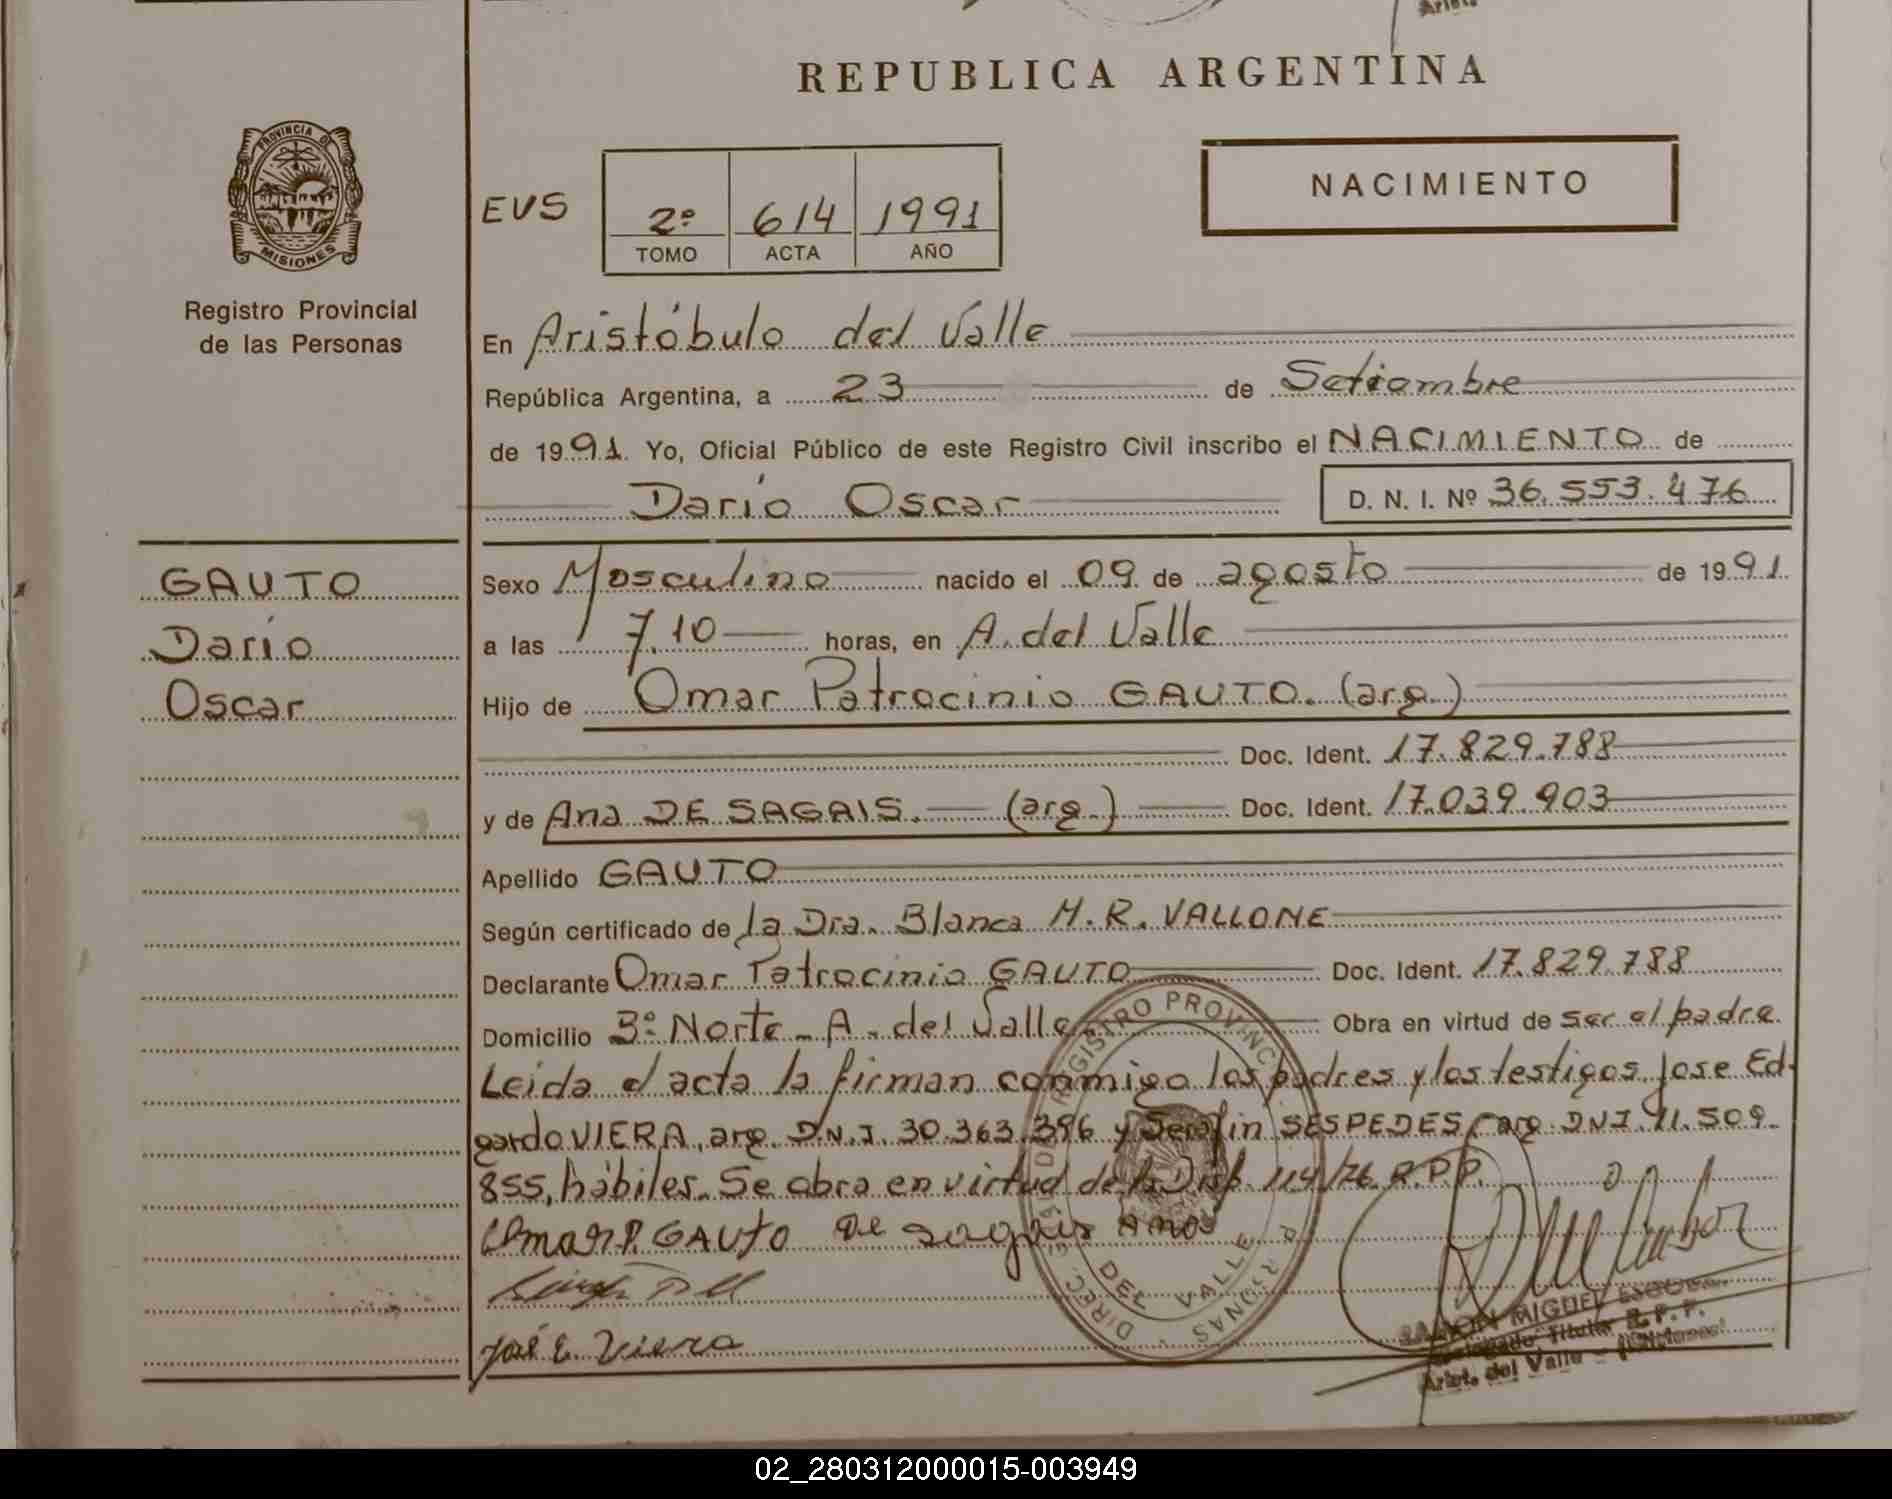 REPUBLICA ARGENTINA
PROVINCIA DE
MISIONES
Registro Provincial
de las Personas
NACIMIENTO
EVS 2º 614 1991
TOMO ACTA AÑO
En Aristóbulo del Valle
República Argentina, a 23 de Setiembre
de 1991. Yo, Oficial Público de este Registro Civil inscribo el NACIMIENTO de
Darío Oscar D. N. I. Nº 36.553.476
GAUTO
Darío
Oscar
Sexo Masculino nacido el 09 de agosto de 1991
a las 7.10 horas, en A. del Valle
Hijo de Omar Patrocinio GAUTO. (arg.)
Doc. Ident. 17.829.788
y de Ana DE SAGAIS. (arg.) Doc. Ident. 17.039.903
Apellido GAUTO
Según certificado de la Dra. Blanca M. R. VALLONE
Declarante Omar Patrocinio GAUTO Doc. Ident. 17.829.788
Domicilio 3º Norte - A. del Valle Obra en virtud de ser el padre
Leida el acta la firman conmigo los padres y los testigos Jose Ed-
gardo VIERA, arg. D.N.I. 30.363.396 y Serafin SESPEDES, arg. DNI. 11.509.
855, hábiles. Se obra en virtud de la Disp. 114/76 R.P.P.
Omar P. GAUTO De Sagais Ana
José E. Viera
REGISTRO PROVINCIAL
DEL VALLE
MIGUEL
Titular R. P. P.
Arist. del Valle
02_280312000015-003949